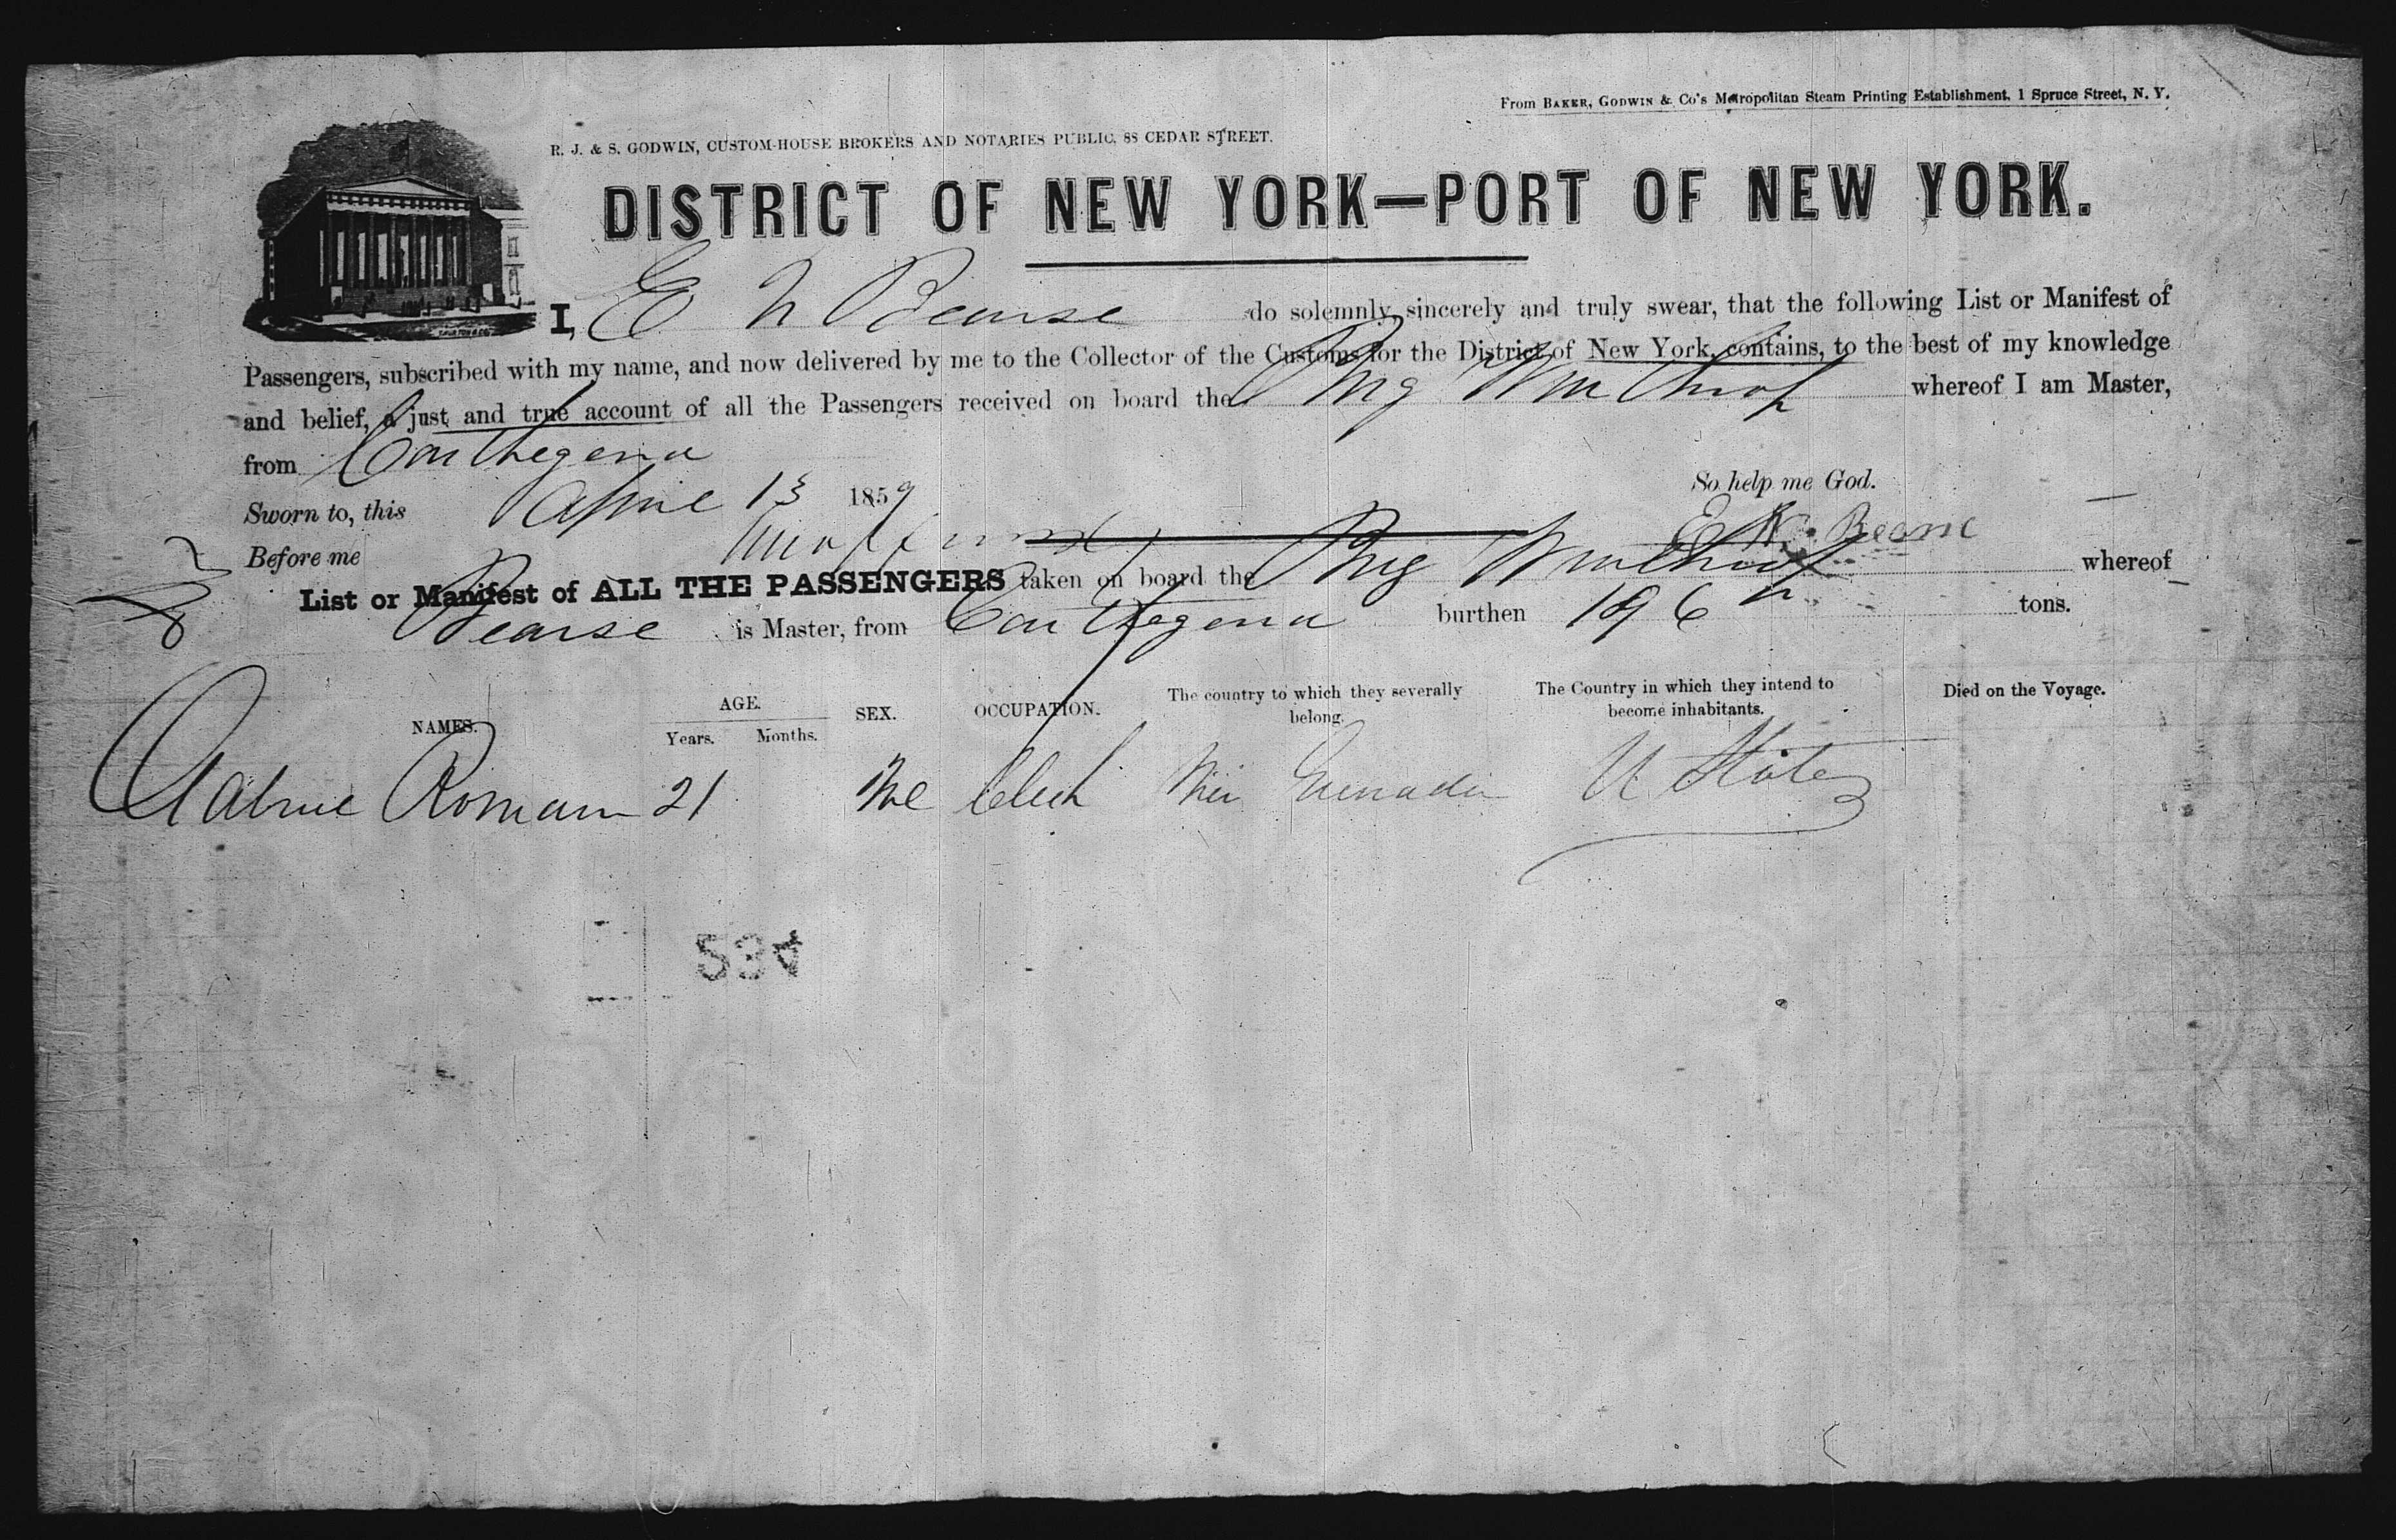 From BAKER, GODWIN & Co's Metropolitan Steam Printing Establishment, 1 Spruce Street, N. Y.
R. J. & S. GODWIN, CUSTOM-HOUSE BROKERS AND NOTARIES PUBLIC, 88 CEDAR STREET.
DISTRICT OF NEW YORK—PORT OF NEW YORK.
I, E N Bearse do solemnly, sincerely and truly swear, that the following List or Manifest of
Passengers, subscribed with my name, and now delivered by me to the Collector of the Customs for the District of New York, contains, to the best of my knowledge
and belief, a just and true account of all the Passengers received on board the Brig Winthrop whereof I am Master,
from Carthegena
Sworn to, this April 13 1859 So help me God.
Before me E N. Bearse
List or Manifest of ALL THE PASSENGERS taken on board the Brig Winthrop whereof
Bearse is Master, from Carthegena burthen 196 tons.
NAMES. AGE. Years. Months. SEX. OCCUPATION. The country to which they severally belong. The Country in which they intend to become inhabitants. Died on the Voyage.
Roman 21 Me Clerk New Grenada U States
534